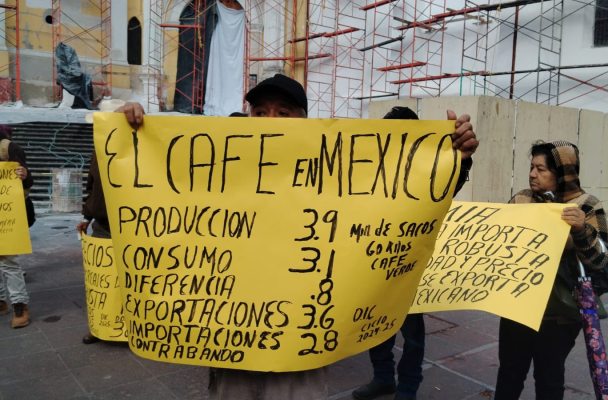 EL CAFE EN MEXICO
PRODUCCION 3.9
CONSUMO 3.1
DIFERENCIA .8
EXPORTACIONES 3.6
IMPORTACIONES 2.8
CONTRABANDO
MILL DE SACOS
60 KILOS
CAFE
VERDE
DIC
CICLO
2024-25
IMPORTA
ROBUSTA
DAD Y PRECIO
SE EXPORTA
MEXICANO